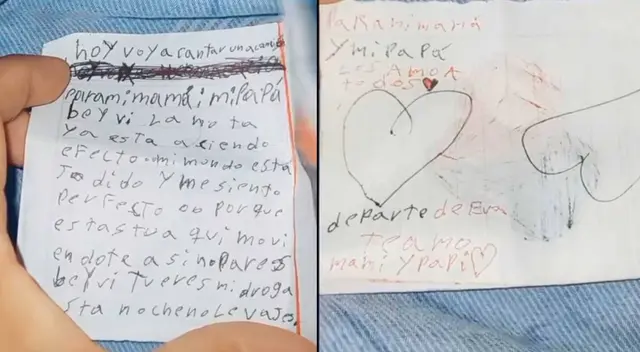 hoy voy a cantar una cancion
para mi mamá i mi papá
beyvi la no ta
ya esta a siendo
efecto mi mundo esta
Jodido y me siento
perfesto oo porque
estas tu a qui movi
en dote a si no pares
beyvi tu eres mi droga
sta noche no le vajes.
para mi mamá
y mi papá
Les AmoA
todos
departe de Eva
te amo
mami y papi